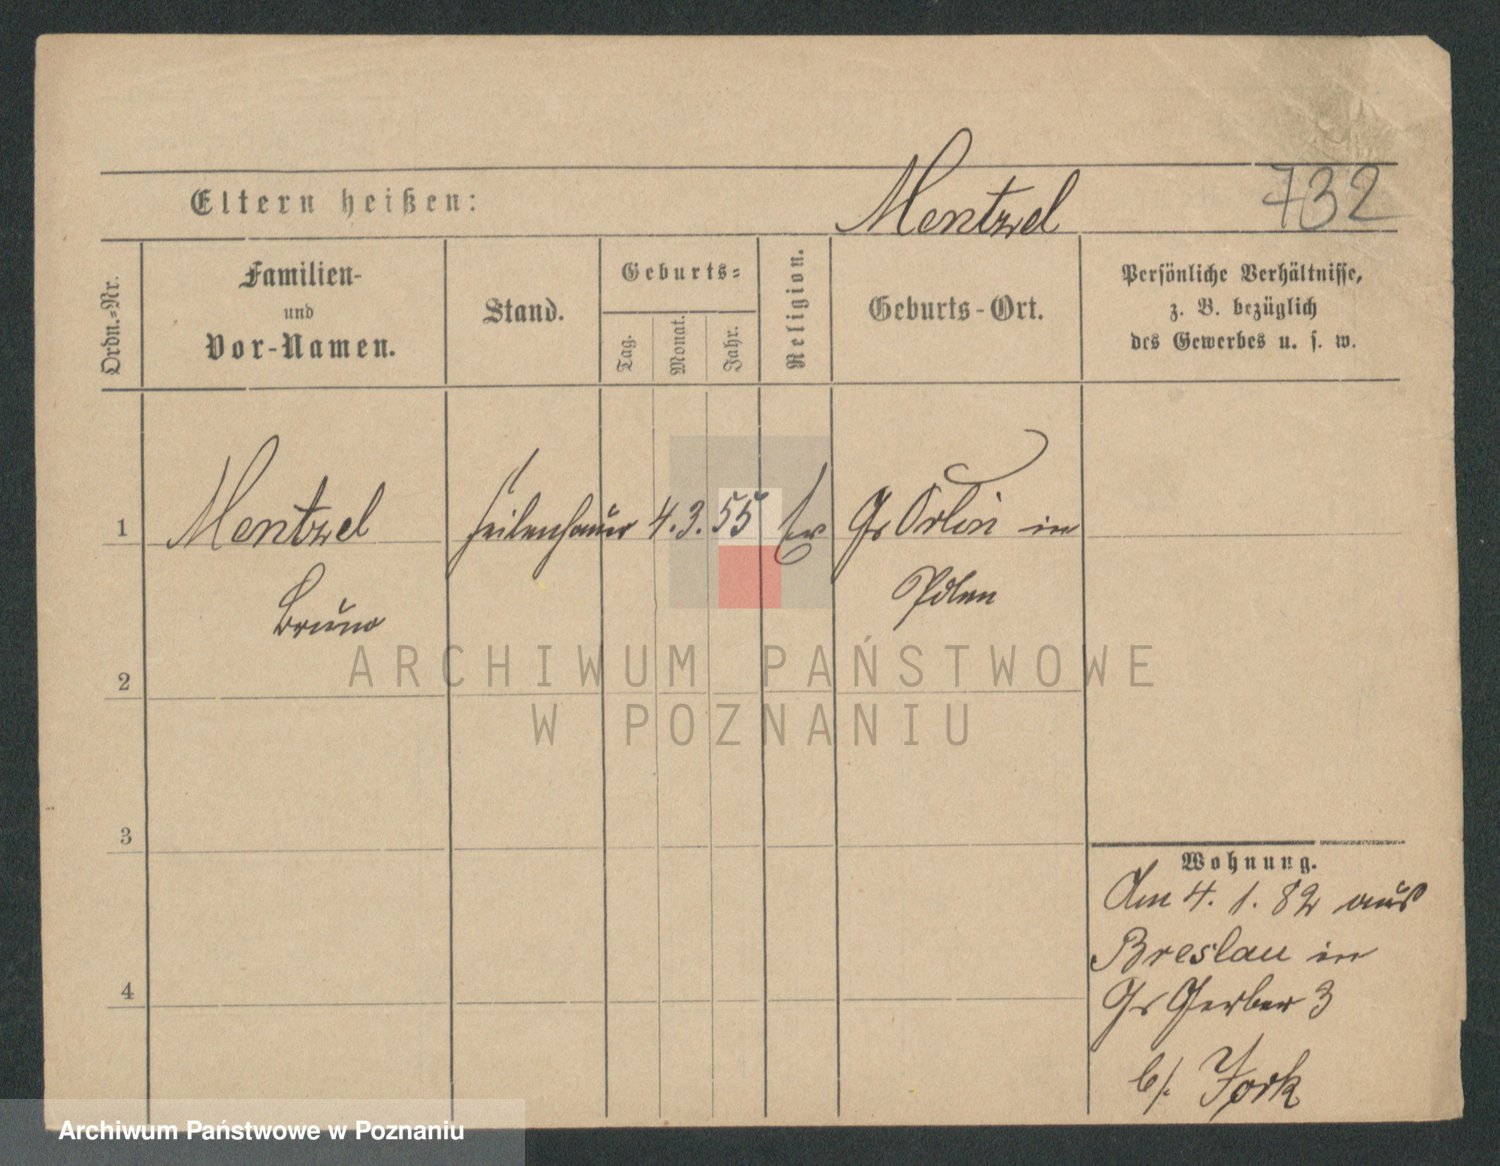 Mentzel 732
Eltern heißen:
Ordn.-Nr.
Familien-
und
Vor-Namen.
Stand.
Geburts-
Tag.
Monat.
Jahr.
Religion.
Geburts-Ort.
Persönliche Verhältnisse,
z. B. bezüglich
des Gewerbes u. s. w.
1 Mentzel Feilenhauer 4. 3. 55 Gr in
Bruno
2
3
4
Wohnung.
Am 4. 1. 82 aus
Breslau in
Gr Gerber 3
b/. York
ARCHIWUM PAŃSTWOWE
W POZNANIU
Archiwum Państwowe w Poznaniu